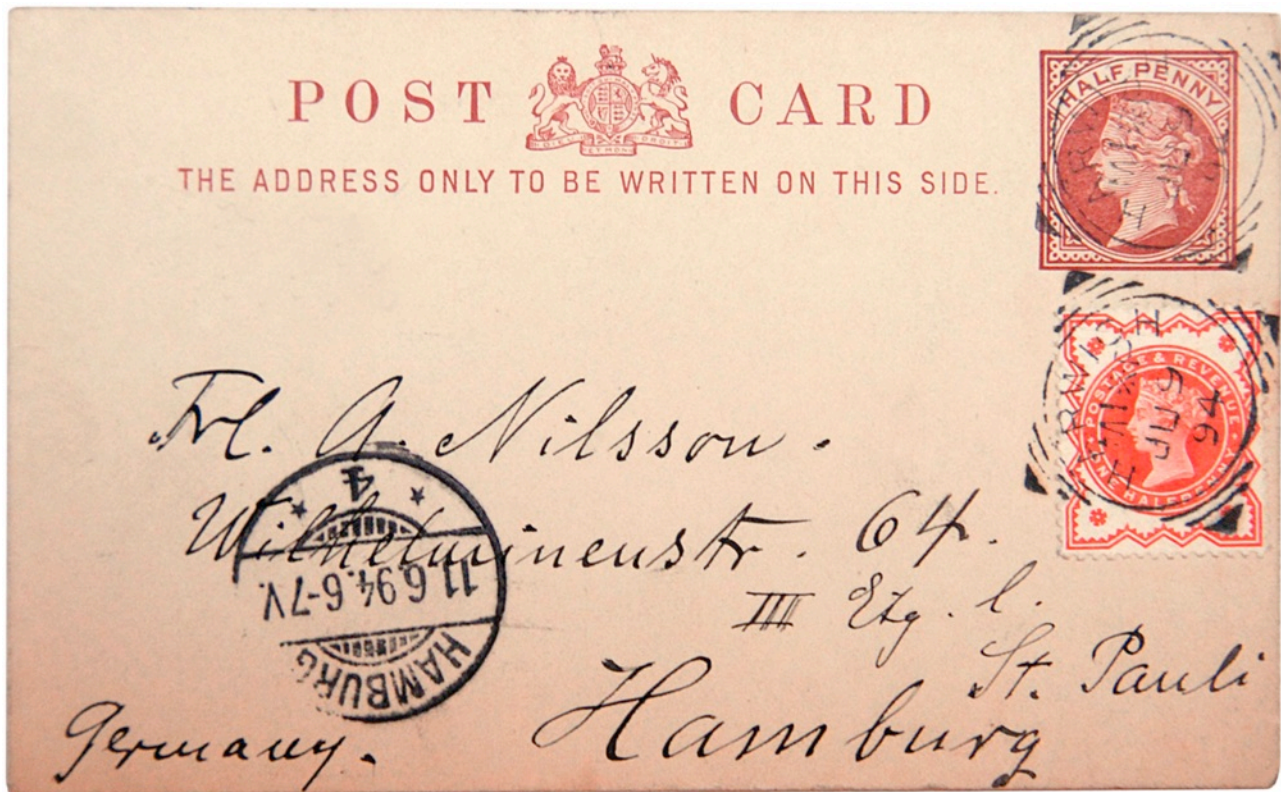 POST CARD
THE ADDRESS ONLY TO BE WRITTEN ON THIS SIDE.
HALF PENNY
POSTAGE & REVENUE
ONE HALFPENNY
HARWICH
JU 9
94
Frl. A. Nilsson.
Wilhelminenstr. 64.
III Etg. l.
St. Pauli
Hamburg
Germany.
HAMBURG
11.6.94.6-7V.
4